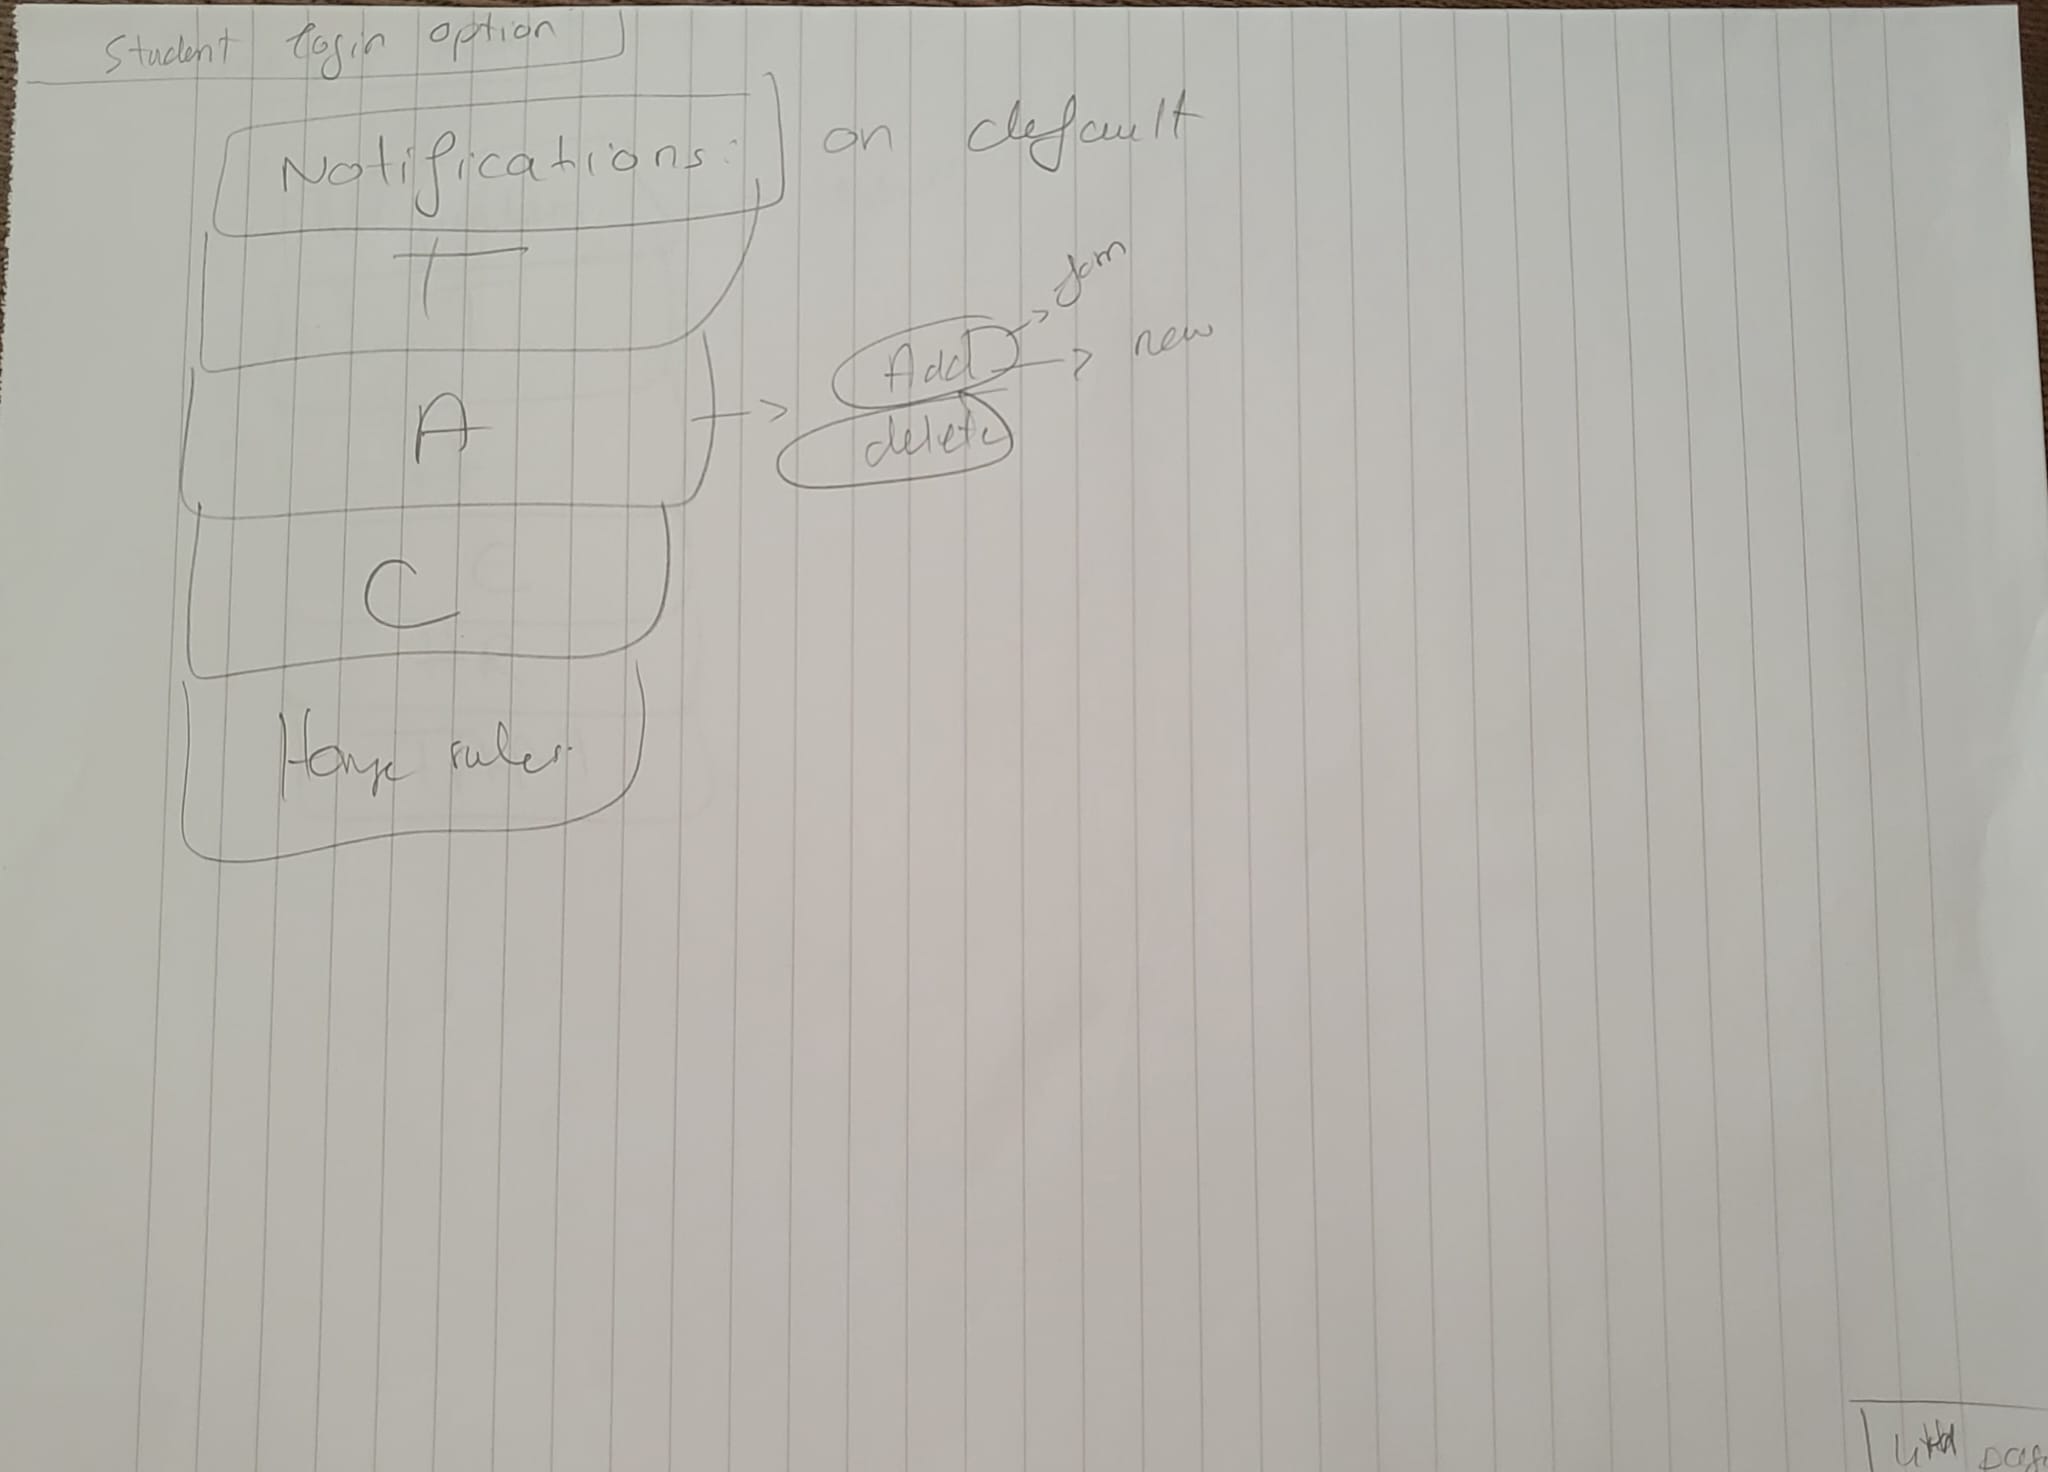 Student login option
Notifications: on default
T
A
Add
new
delete
C
rules